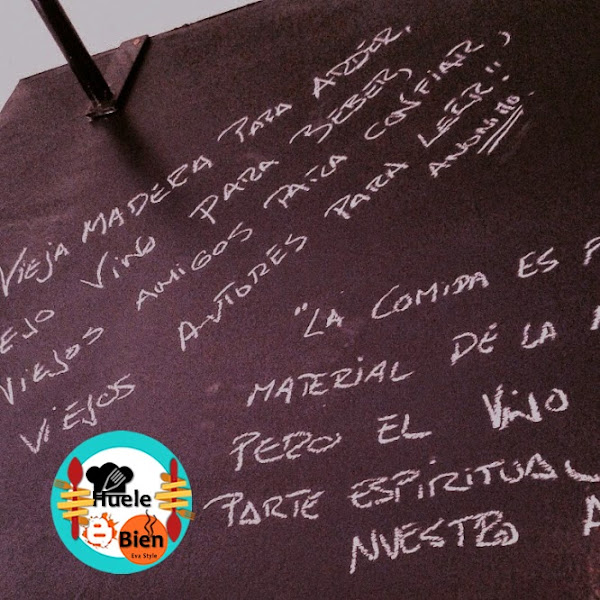 VIEJA MADERA PARA ARDER,
EJO VINO PARA BEBER,
VIEJOS AMIGOS PARA CONFIAR,
VIEJOS AUTORES PARA LEER!!
ANONIMO.
"LA COMIDA ES P
MATERIAL DE LA
PERO EL VINO
PARTE ESPIRITUAL
NUESTRO A
Huele
Bien
Eva Style